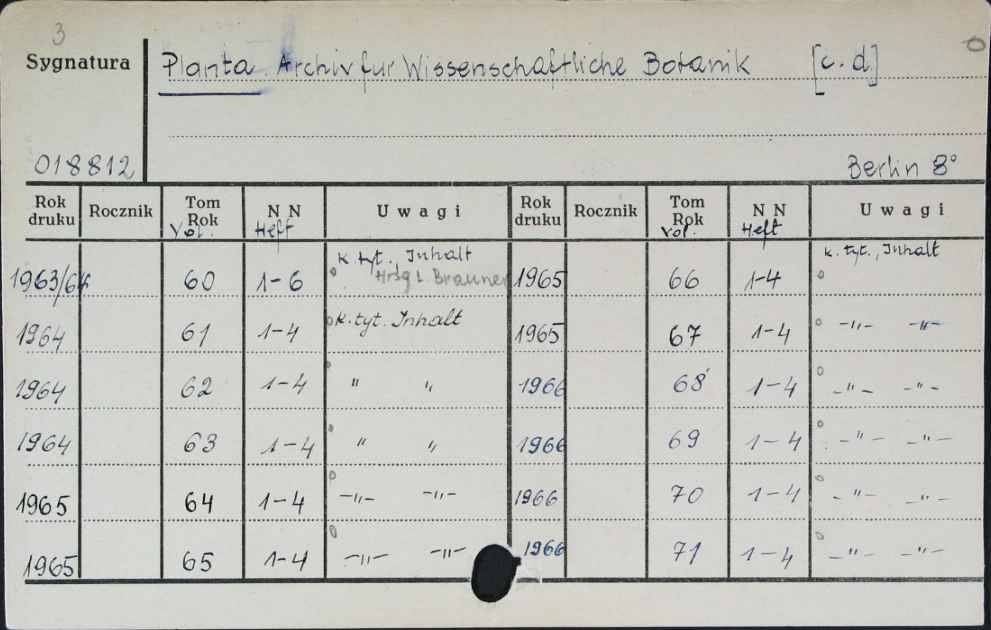 3
Sygnatura Planta Archiv fur Wissenschaftliche Botanik [c. d]
018812 Berlin 8°
Rok druku Rocznik Tom Rok Vol. N N Heft Uwagi Rok druku Rocznik Tom Rok Vol. N N Heft Uwagi
1963/64 60 1-6 k. tyt., Inhalt Hrsg L. Brauner 1965 66 1-4 k. tyt., Inhalt
1964 61 1-4 k. tyt. Inhalt 1965 67 1-4 -"- -"-
1964 62 1-4 " " 1966 68 1-4 -"- -"-
1964 63 1-4 " " 1966 69 1-4 -"- -"-
1965 64 1-4 -"- -"- 1966 70 1-4 -"- -"-
1965 65 1-4 -"- -"- 1966 71 1-4 -"- -"-